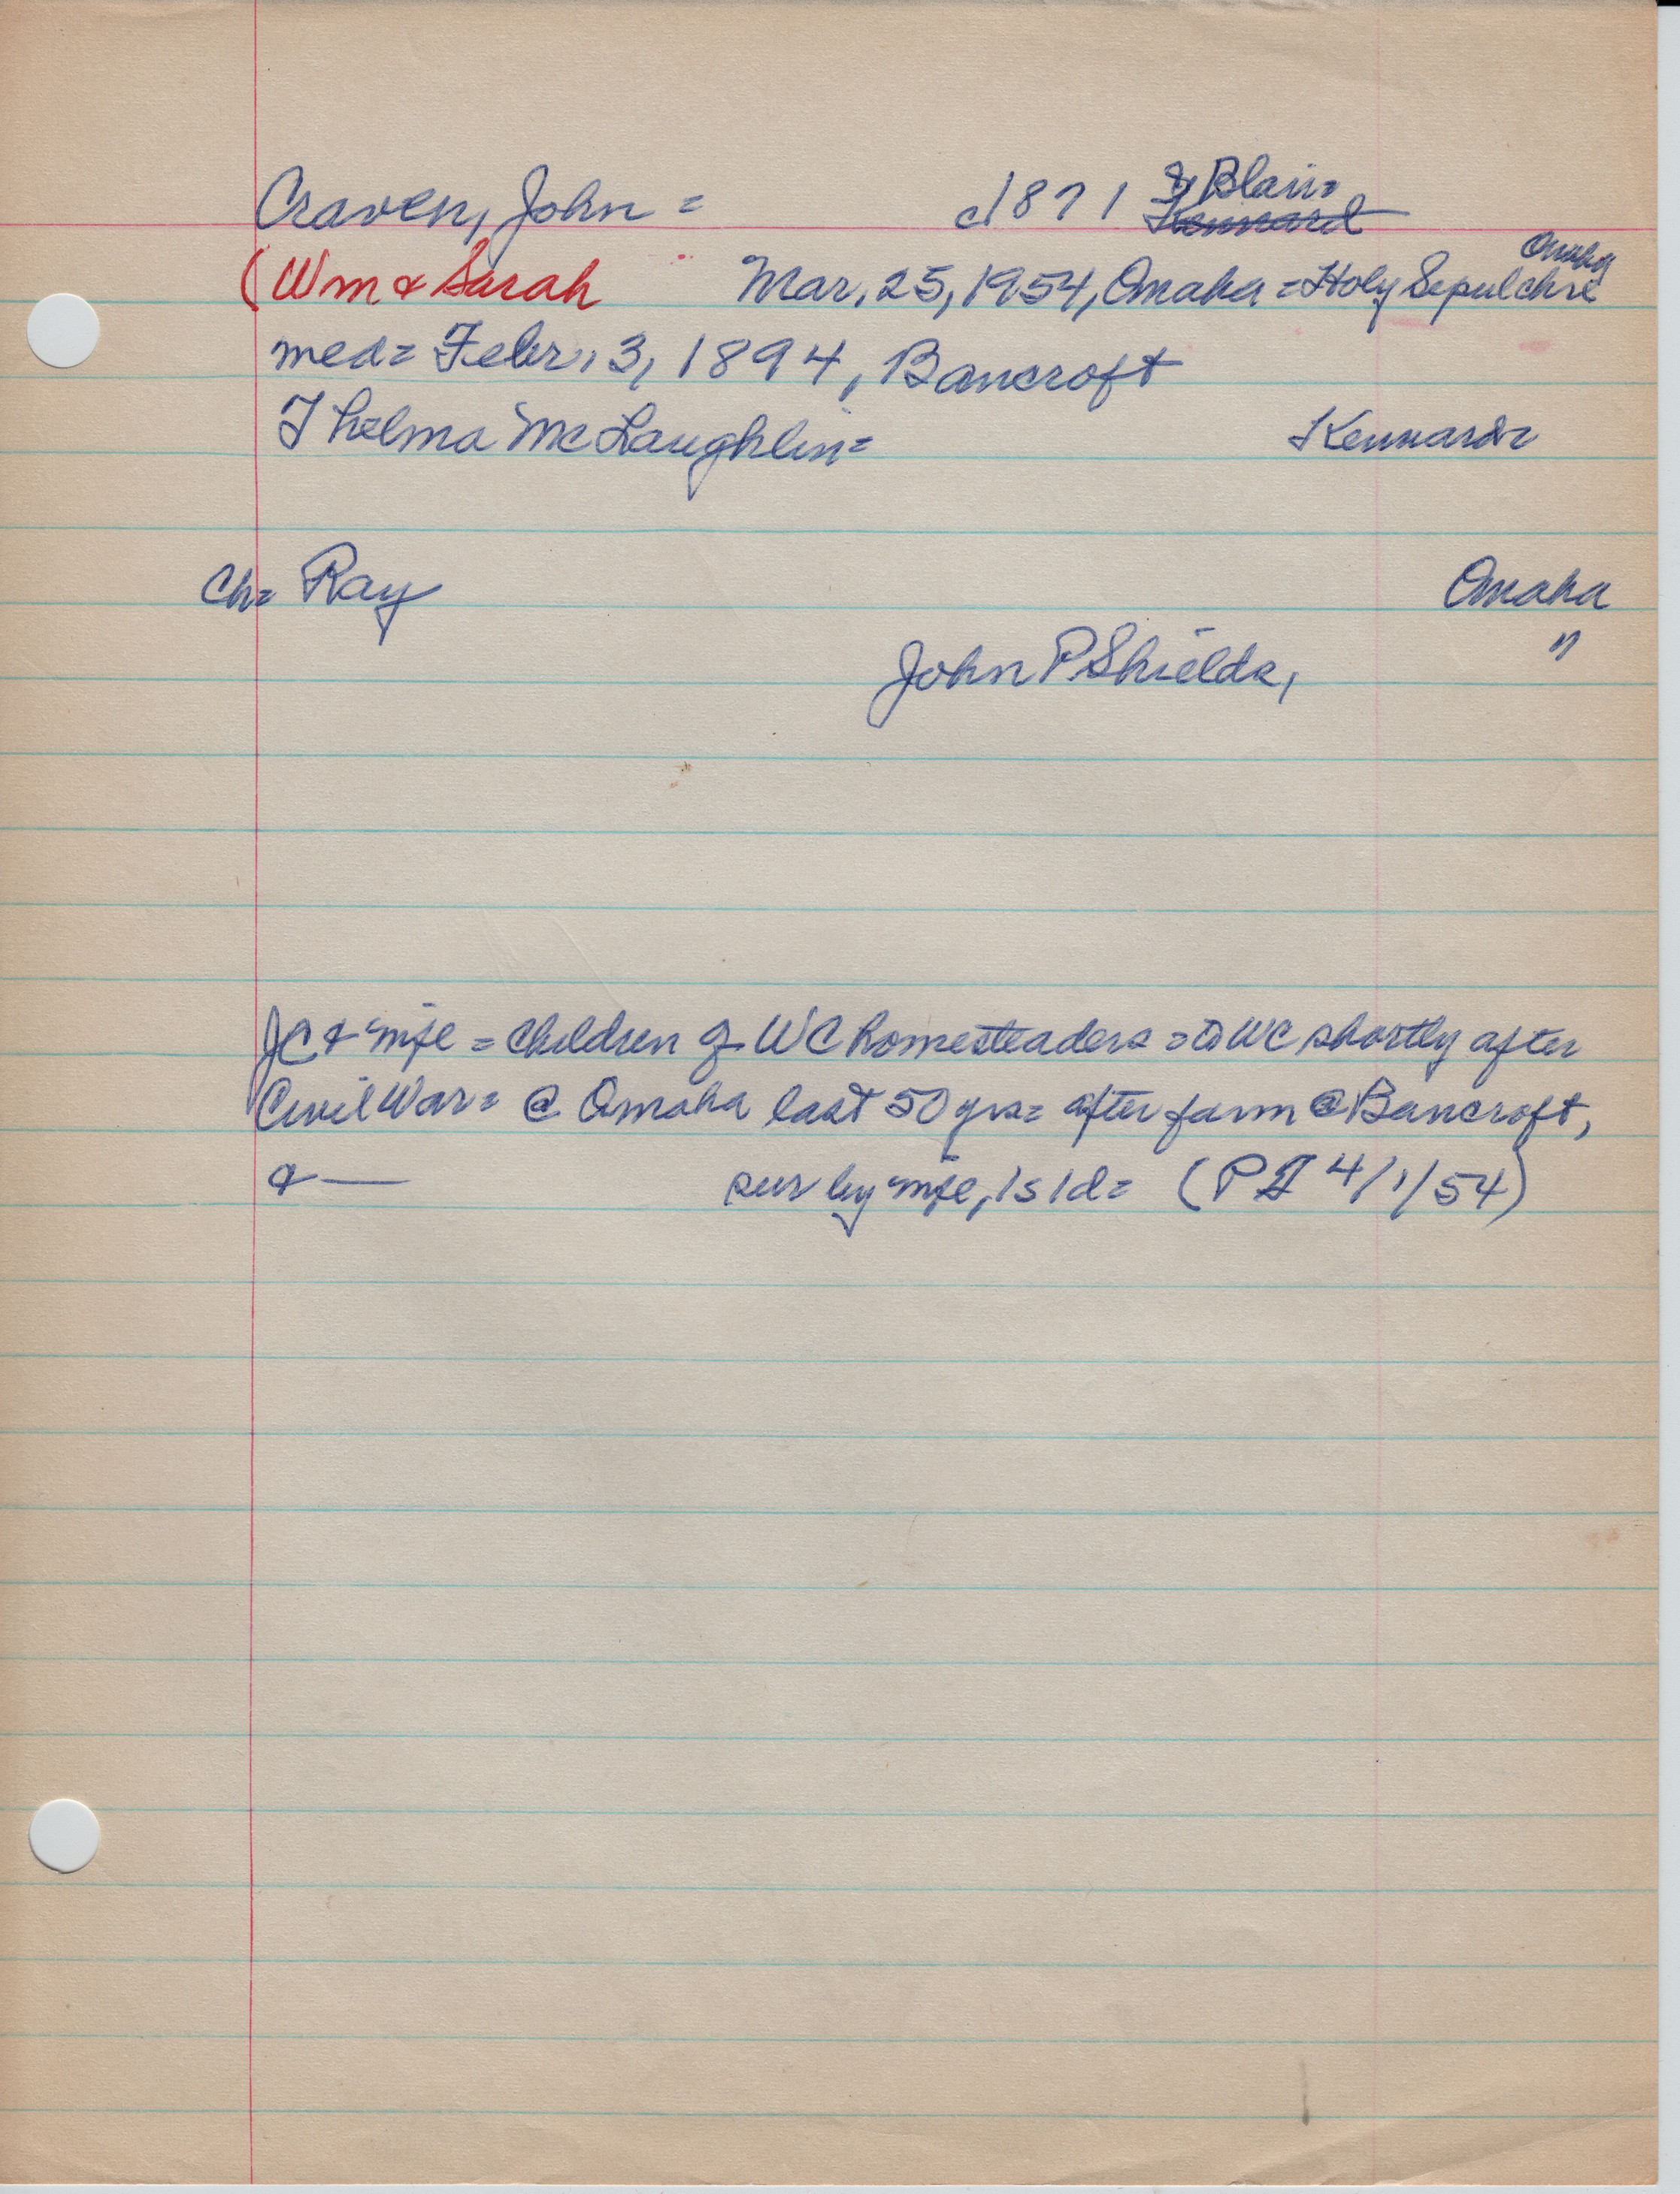 Craven, John = c1871 Blair=
Kennard
(Wm & Sarah Mar, 25, 1954, Omaha = Holy Sepulchre Omaha
med= Febr. 3, 1894, Bancroft
Thelma McLaughlin= Kennard=
Ch= Ray Omaha
John P Shields, "
JC & wife = children of WC homesteaders = to WC shortly after
Civil War= @ Omaha last 50 yrs= after farm @ Bancroft,
& — sur by wife, 1s 1d= (PT 4/1/54)